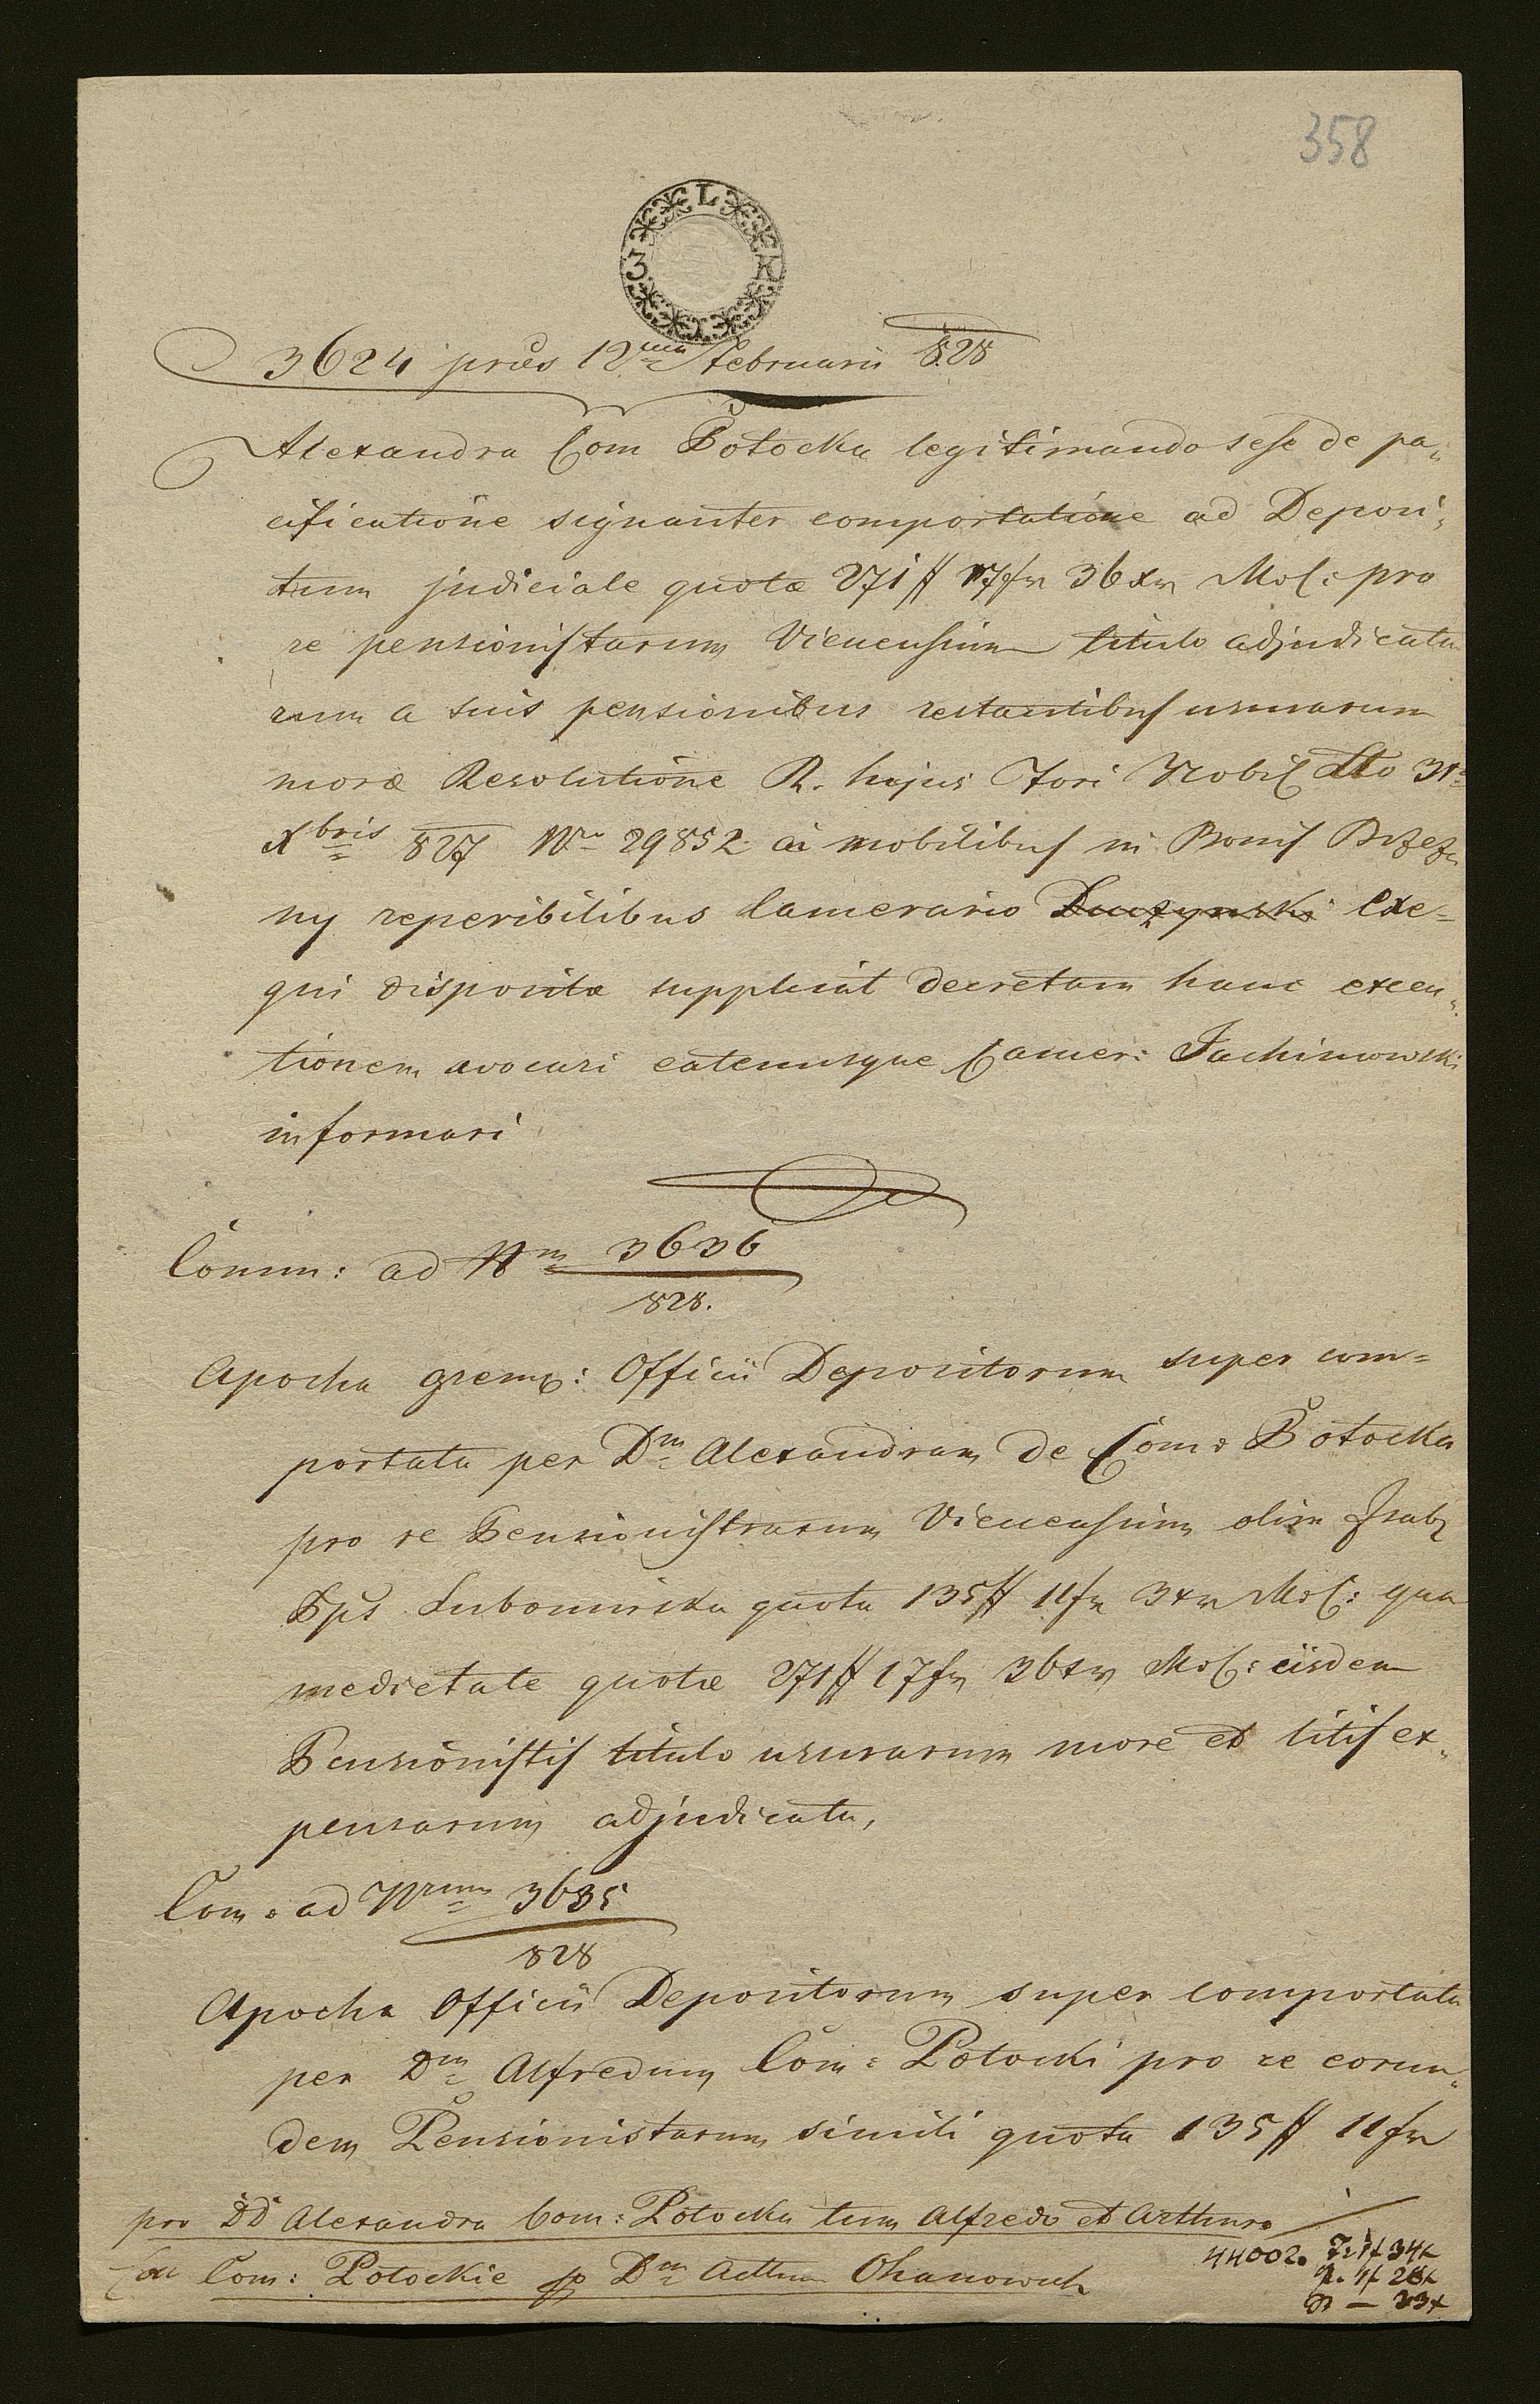 358
3 L K I
3624 præs 12ma Februarii 828
Alexandra Com Potocka legitimando sese de pa„
cificatione signanter comportatione ad Deposi„
tum judiciale quotæ 271 ff 17 fr 36 xr MoC: pro
re pensionistarum Vienensium titulo adjudicata
rum a suis pensionibus restantibus usurarum
moræ Resolutione R. hujus Fori Nobil dto 31a
Xbris 827 Nro 29852 ai mobilibus in Bonis Brzeza
ny reperibilibus Camerario Duczynski Exe-
qui disposita supplicat decretam hanc execu„
tionem avocari eatenusque Camer: Jachimowski
informari
Comm: ad Nm 3636
828.
Apocha grem: Officii Depositorum super com=
portata per Dm Alexandram de Com: Potocka
pro re Pensionistrarum Vienensium olim Isab
Pps Lubomirska quota 135 ff 11 fr 3 xr MoC: qua
medietate quotæ 271 ff 17 fr 36 xr MoC: eisdem
Pensionistis titulo usurarum more et litis ex„
pensarum adjudicata,
Com: ad Nrum 3635
828
Apocha Officii Depositorum super comportata
per Dm Alfredum Com: Potocki pro re eorun„
dem Pensionistarum simili quota 135 ff 11 fr
pro DD Alexandra Com: Potocka tum Alfredo et Arthuro
Com: Potockie Dm Ohanowich
44002.